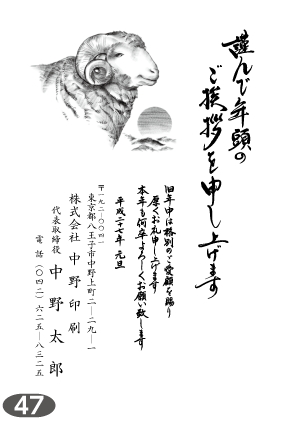 謹んで年頭の
ご挨拶を申し上げます
旧年中は格別のご愛顧を賜り
厚くお礼申し上げます
本年も何卒よろしくお願い致します
平成二十七年 元旦
〒一九二-〇〇四一
東京都八王子市中野上町二-二九-一
株式会社 中野印刷
代表取締役 中野太郎
電話(〇四二)六二五-八三二五
47